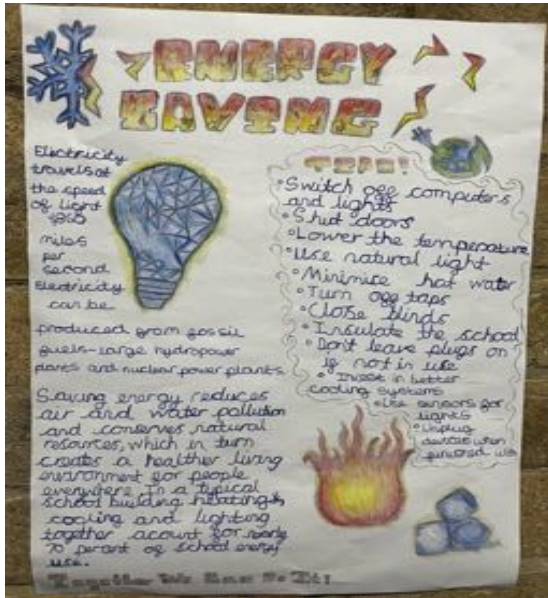 ENERGY
SAVING
Electricity
travels at
the speed
of light
miles
per
second
Electricity
can be
produced from fossil
fuels-large hydropower
plants and nuclear power plants.
Saving energy reduces
air and water pollution
and conserves natural
resources, which in turn
creates a healther living
environment for people
everywhere. In a typical
school building heating &
cooling and lighting
together acount for nearly
70 percent of school energy
use.
TIPS!
•Switch off computers
and lights
•Shut doors
•Lower the temperature
•Use natural light
•Minimise hot water
•Turn off taps
•Close blinds
•Insulate the school
•Don't leave plugs on
if not in use
•Invest in better
cooling systems
•Use sensors for
lights
•Unplug
devices when
finished with
Together We Can Do It!